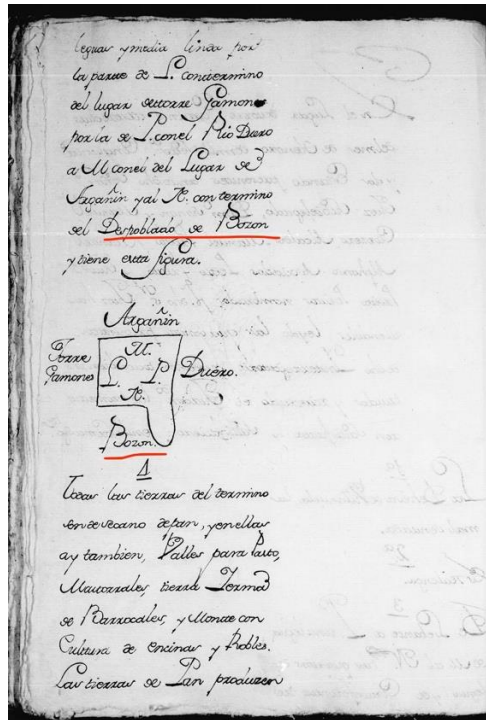 leguas y media linda por
la parte de L. con termino
del lugar de torre Gamones
por la de P. con el Rio Duero
a M. con el del Lugar de
Argañin y al N. con termino
del Despoblado de Bozon
y tiene esta figura.
Argañin
M.
Torre
Gamones
L. P. Duero.
N.
Bozon.
4
Todas las tierras del termino
son de secano de pan, y en ellas
ay tambien, Valles para Pasto,
Matorrales, tierra Yerma
de Barrocales, y Monte con
Cultura de encinas y Robles.
Las tierras de Pan producen